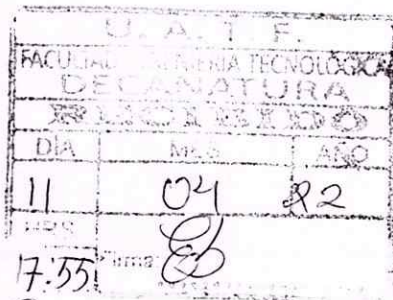 U. A. T. F.
FACULTAD INGENIERIA TECNOLOGICA
DECANATURA
RECIBIDO
DIA MES AÑO
11 04 22
HRS
17:55 Firma